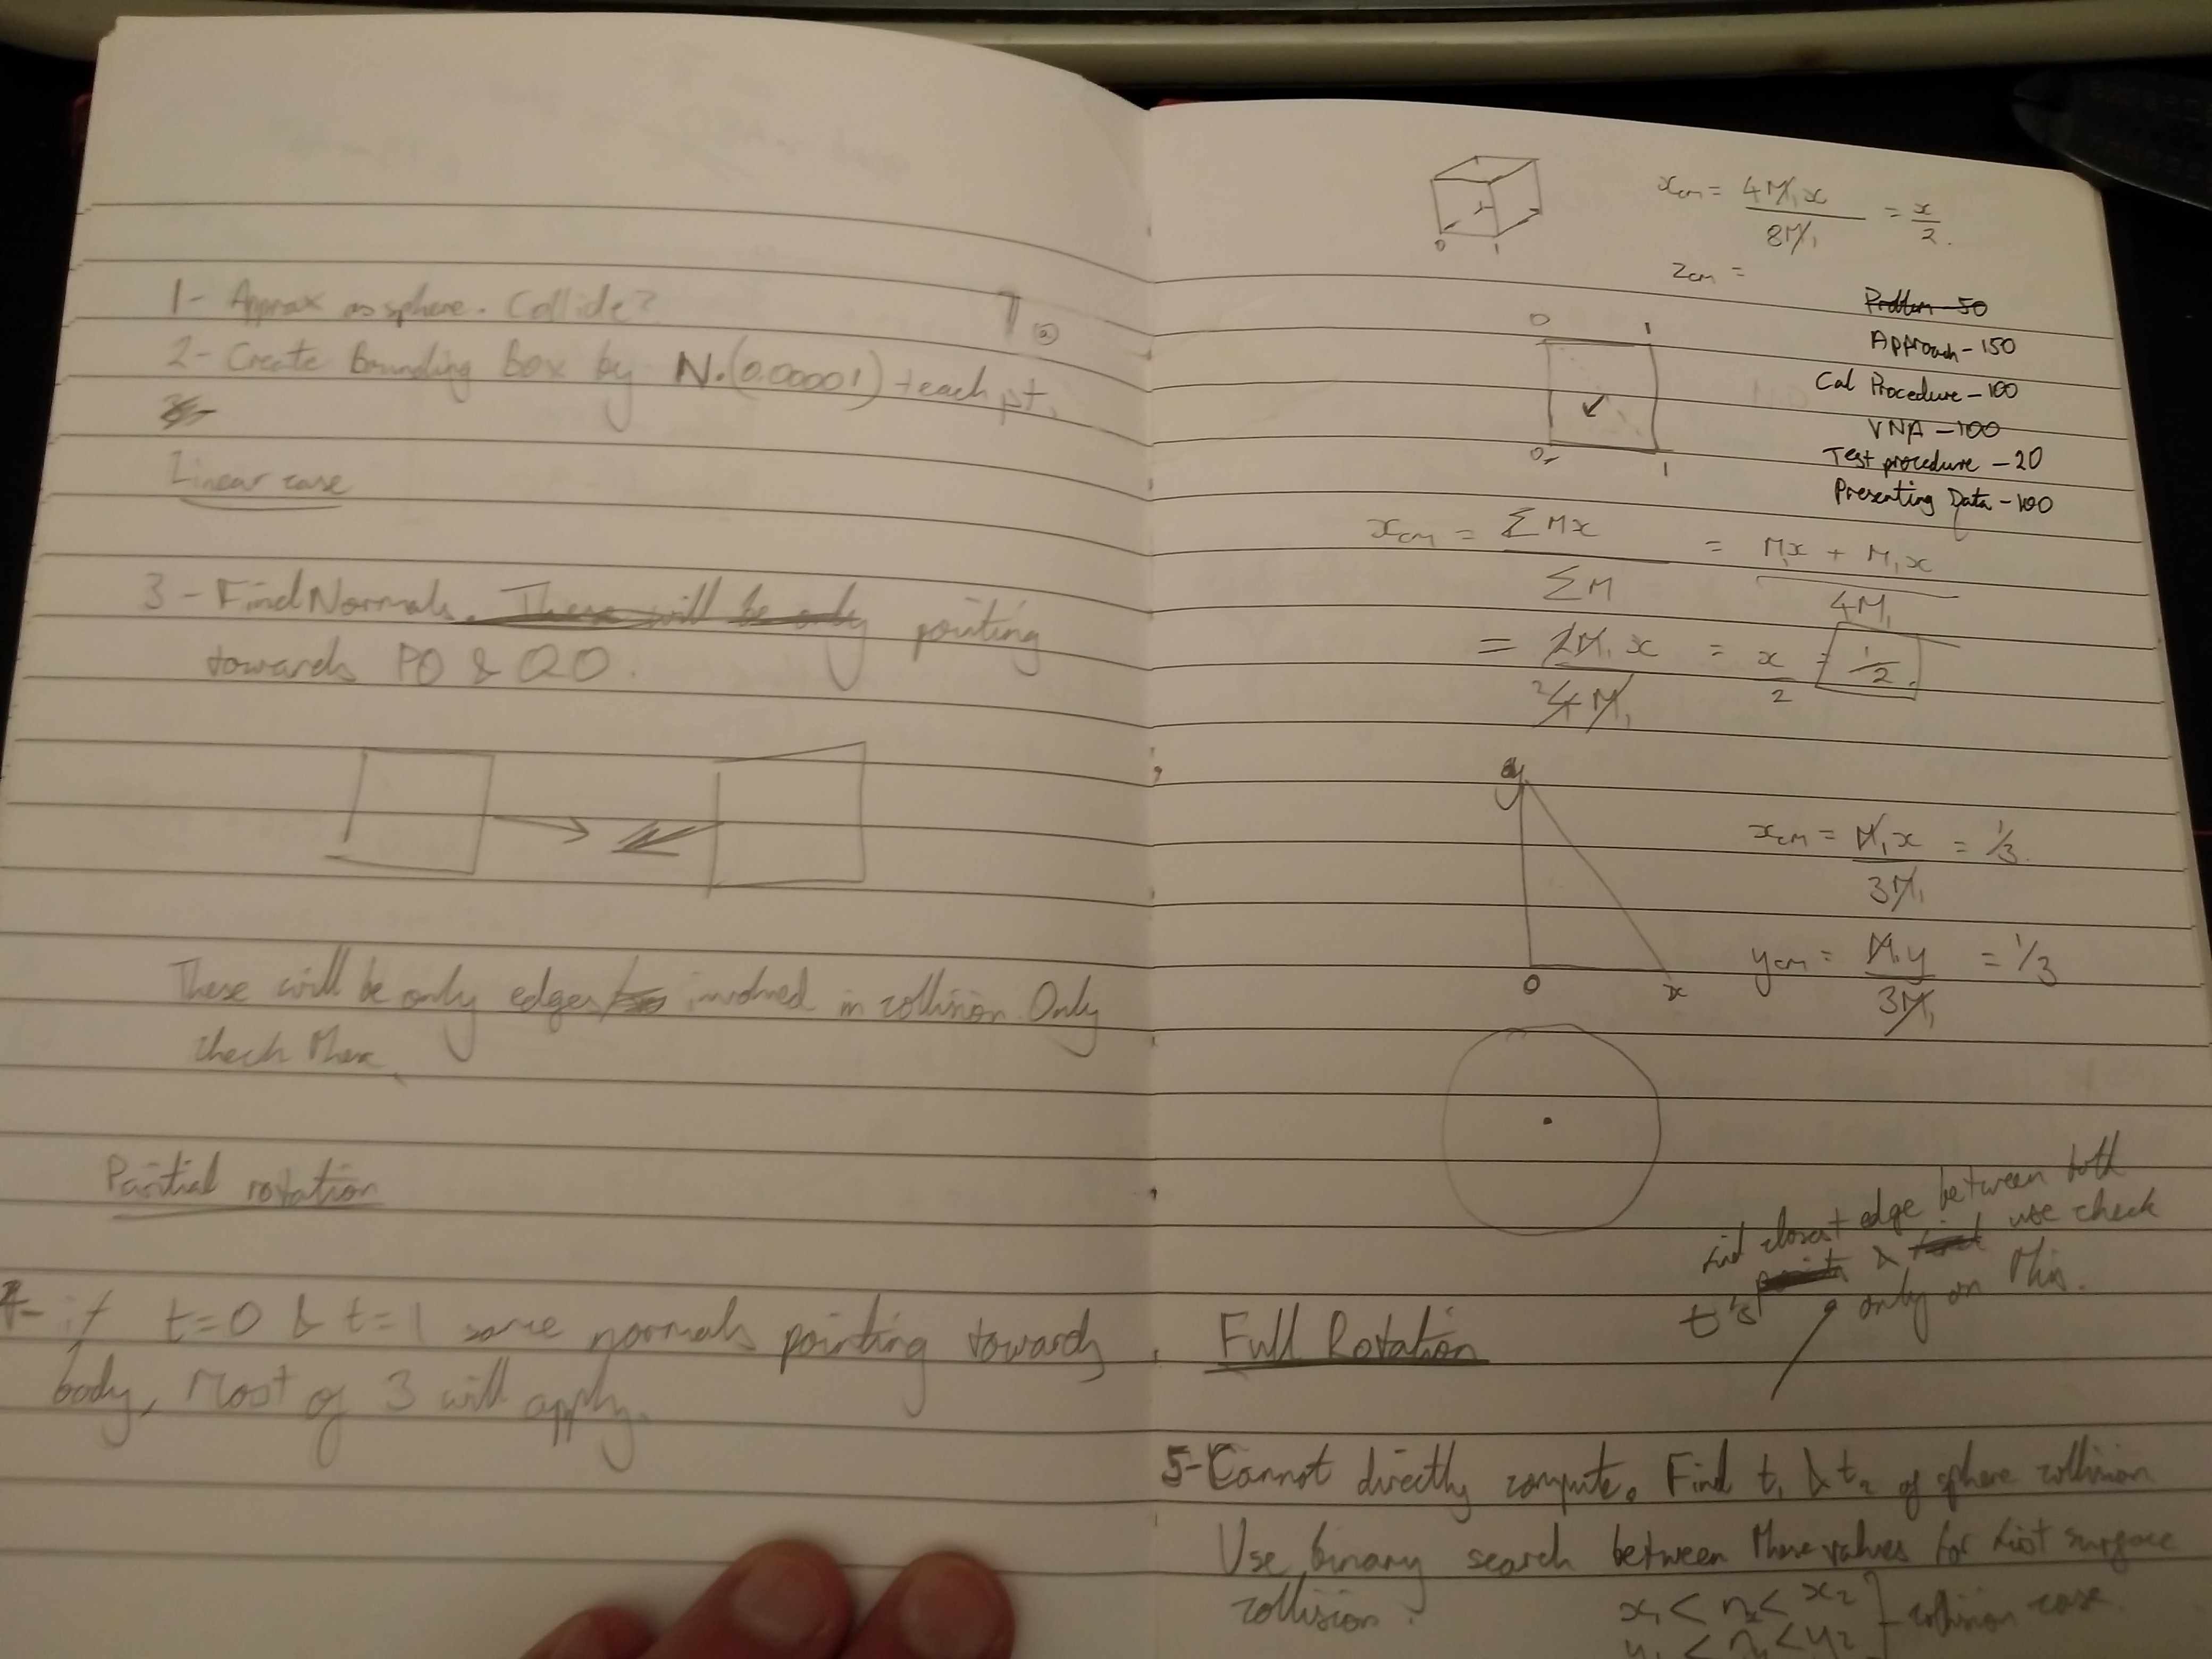 1- Approx as sphere. Collide?
2- Create Bounding Box by N.(0.00001) + each pt.
Linear case
3- Find Normals. These will be only pointing
towards PO & QO.
These will be only edges involved in collision. Only
check these
Partial rotation
4- if t=0 & t=1 some normals pointing towards
body, Most of 3 will apply.
0 1
xcm = 4M₁x / 8M₁ = x/2.
zcm =
Problem - 50
Approach - 150
Cal Procedure - 100
VNA - 100
Test procedure - 20
Presenting Data - 100
0 1
0 1
xcm = ΣMx / ΣM = M₁x + M₁x / 4M₁
= 2M₁x / 4M₁ = x/2 = 1/2.
y
0 x
xcm = M₁x / 3M₁ = 1/3.
ycm = M₁y / 3M₁ = 1/3
closest edge between both
t's & use check
only on this.
Full Rotation
5- Cannot directly compute. Find t₁ & t₂ of sphere collision
Use binary search between these values for first surface
collision.
x₁ < nₓ < x₂
y₁ < n < y₂
collision case.